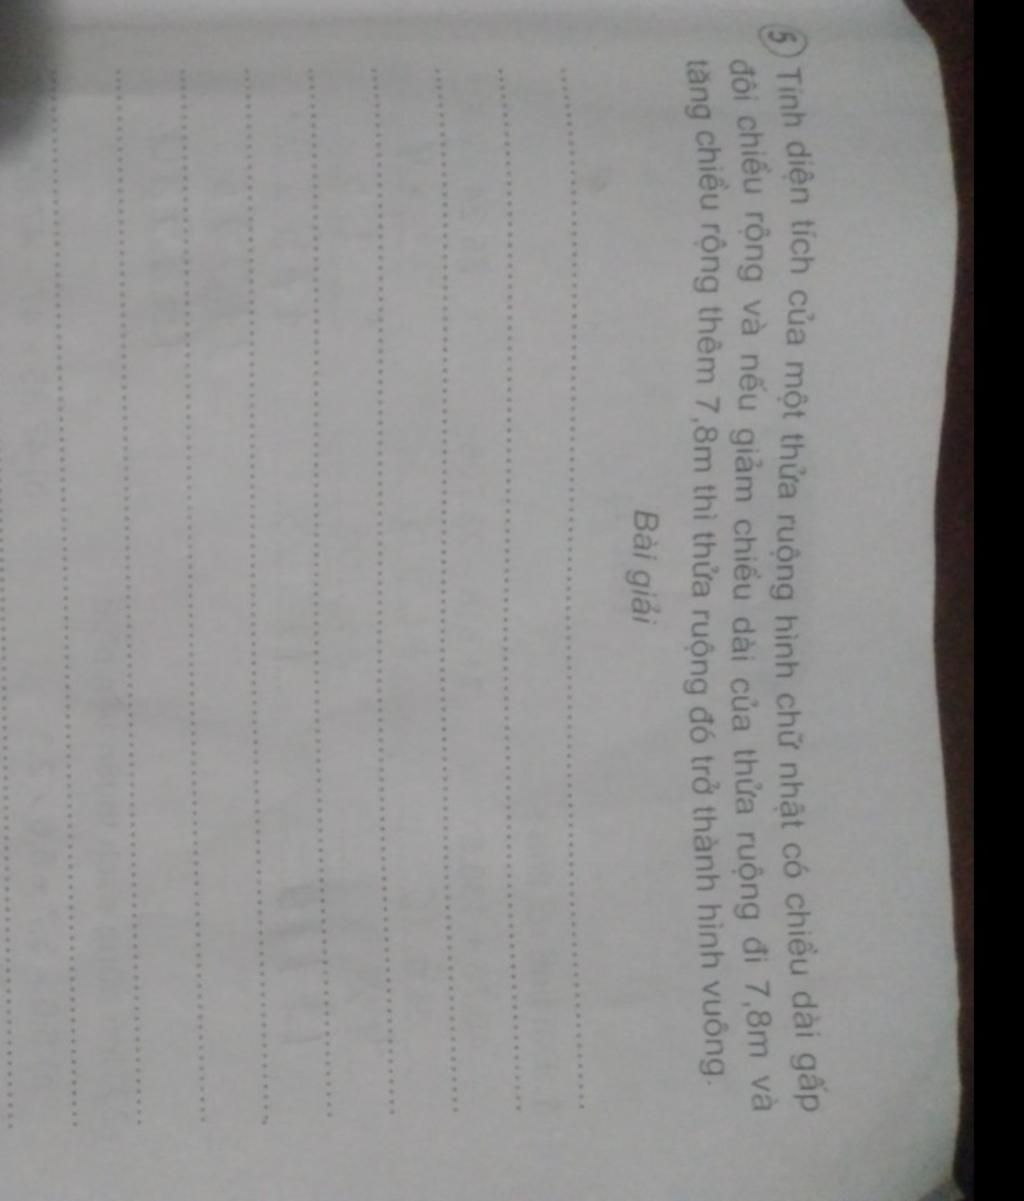 5 Tính diện tích của một thửa ruộng hình chữ nhật có chiều dài gấp
đôi chiều rộng và nếu giảm chiều dài của thửa ruộng đi 7,8m và
tăng chiều rộng thêm 7,8m thì thửa ruộng đó trở thành hình vuông.
Bài giải